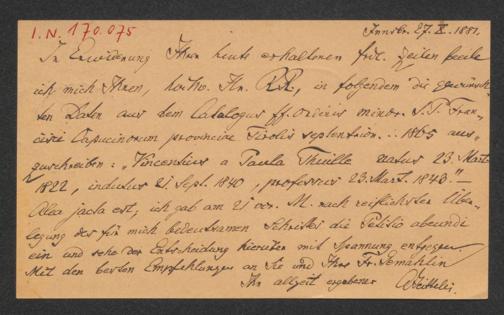 I. N. 170.075
Innsbr. 27. X. 1881.
In Erwiderung Ihrer heute erhaltenen frdl. Zeilen beeile
ich mich Ihnen, hochw. Hr. RR, in folgendem die gewünsch-
ten Daten aus dem Catalogus ff. ordinis minor. S. P. Fran-
cisci Capucinorum provinciae Tirolis septentrion. .. 1865 aus-
zuschreiben: „Vincentius a Paula Thuille natus 23. Mart.
1822, indutus 21. Sept. 1840, professus 23. Mart. 1843." —
Alea jacta est; ich gab am 21. vor. M. nach reiflichster Über-
legung des für mich bedeutsamen Schrittes die Petitio abeundi
ein und sehe der Entscheidung hierüber mit Spannung entgegen.
Mit den besten Empfehlungen an Sie und Ihre Fr. Gemahlin
Ihr allzeit ergebener